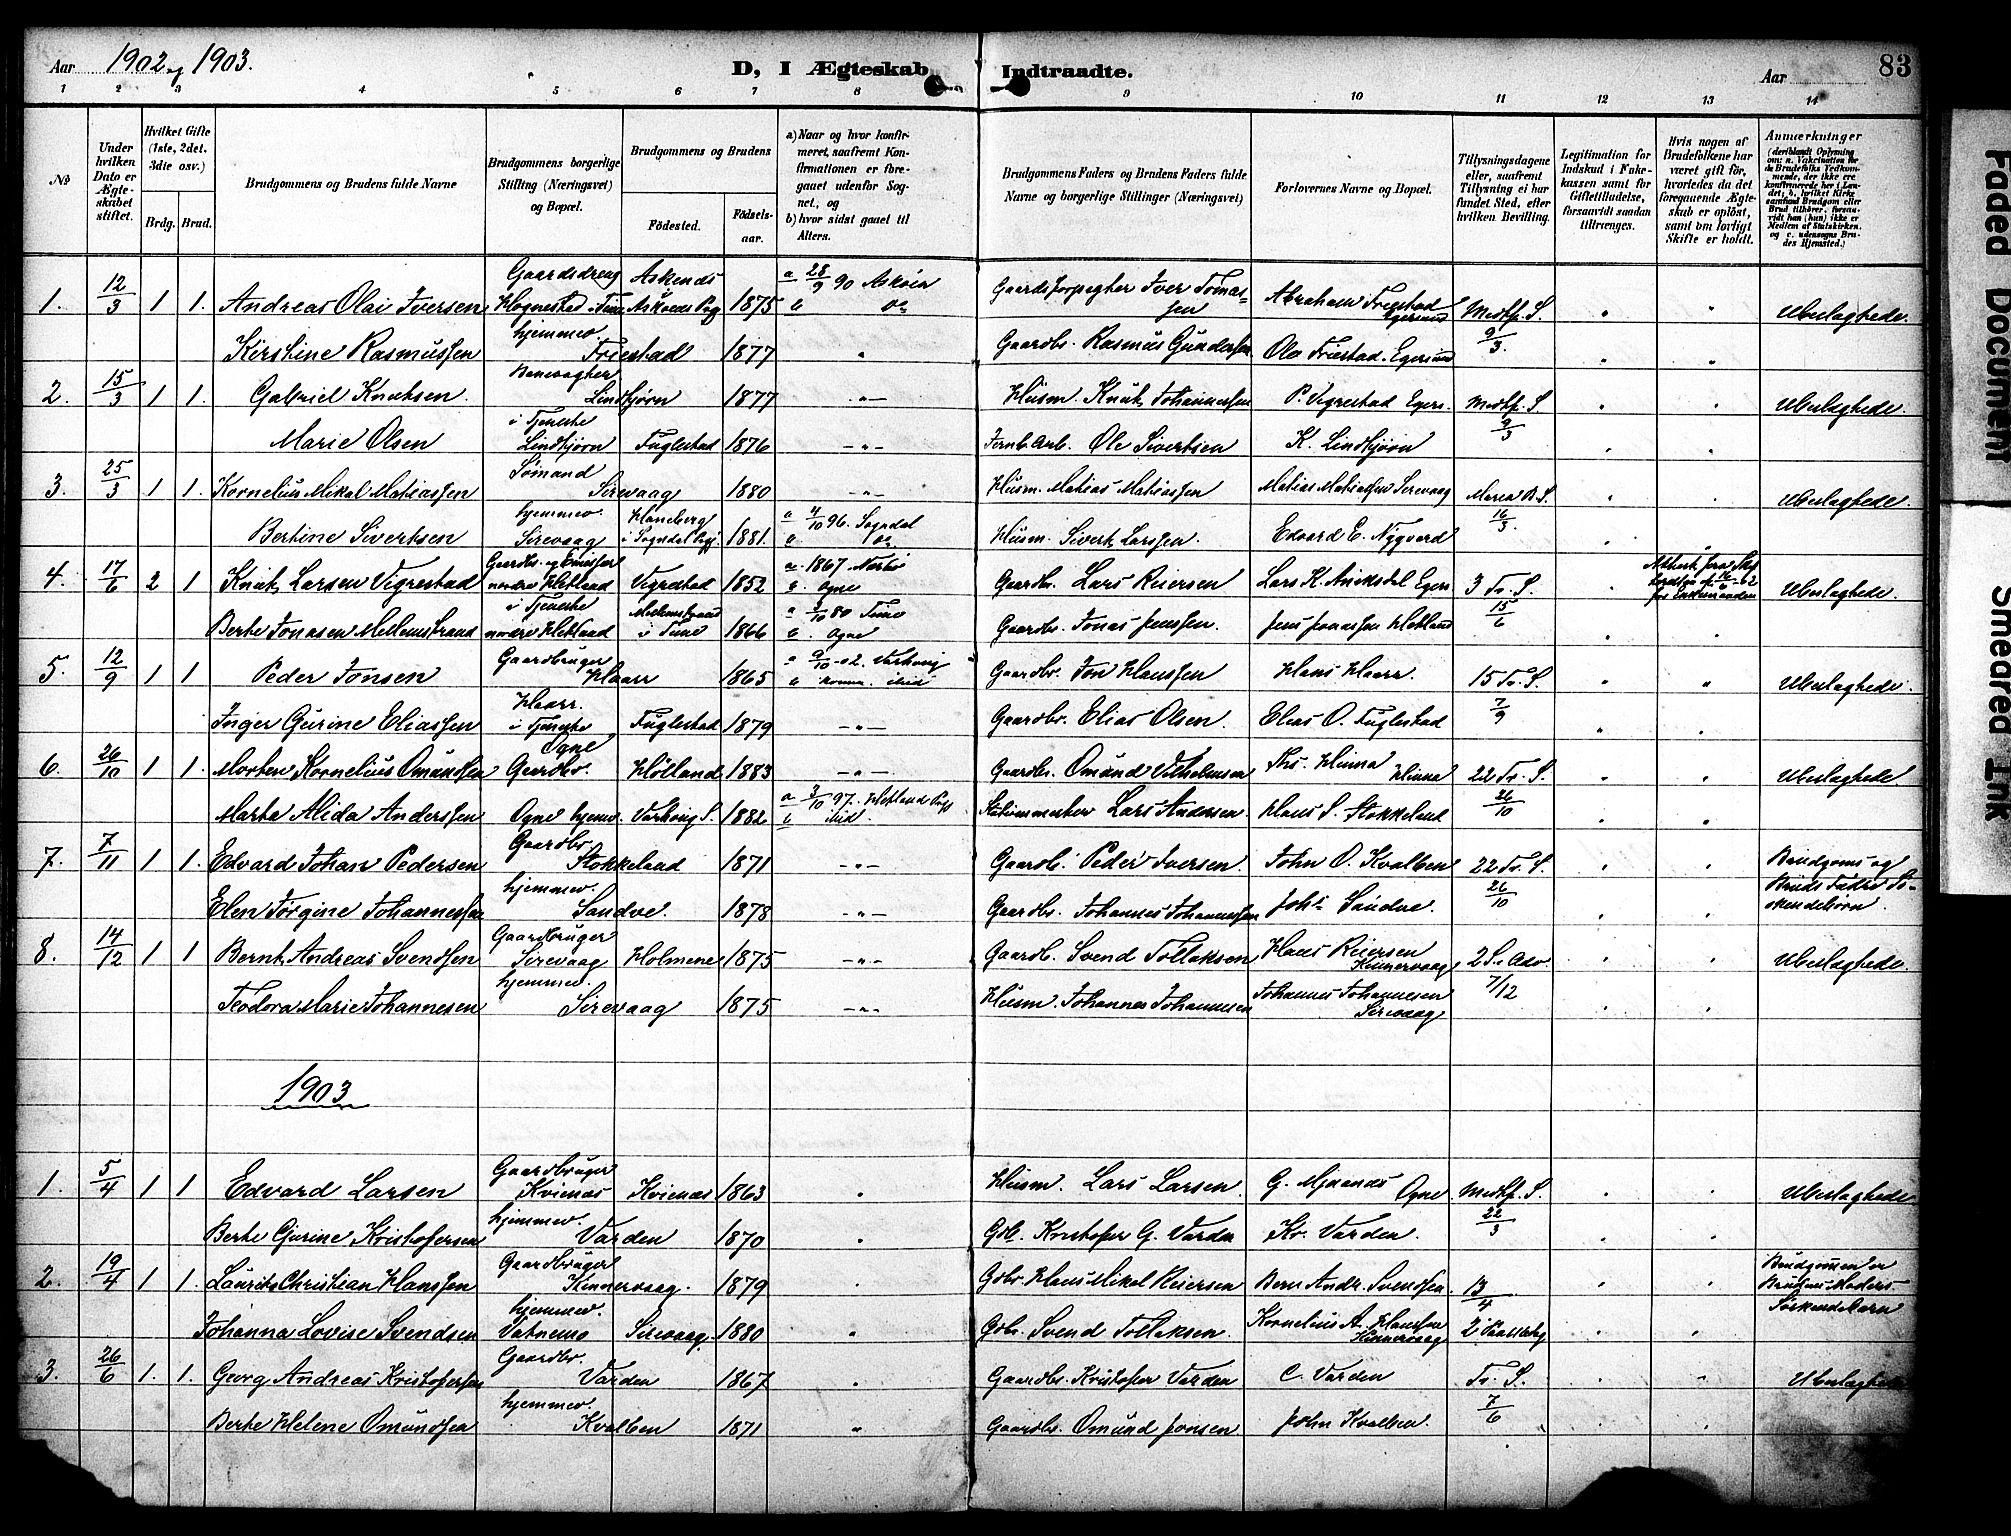 Aar 1902 og 1903.
D, I Ægteskab Indtraadte.
Aar 83
1 2 3 4 5 6 7 8 9 10 11 12 13 14
No
Under hvilken Dato er Ægteskabet stiftet.
Hvilket Gifte (1ste, 2det. 3die osv.)
Brdg. Brud.
Brudgommens og Brudens fulde Navne
Brudgommens borgerlige Stilling (Næringsvei) og Bopæl.
Brudgommens og Brudens
Fødested.
Fødselsaar.
a) Naar og hvor konfirmeret, saafremt Konfirmationen er foregaaet udenfor Sognet, og
b) hvor sidst gaaet til Alters.
Brudgommens Faders og Brudens Faders fulde Navne og borgerlige Stillinger (Næringsvei)
Forlovernes Navne og Bopæl.
Tillysningsdagene eller, saafremt Tillysning ei har fundet Sted, efter hvilken Bevilling.
Legitimation for Indskud i Enkekassen samt for Giftetilladelse, forsaavidt saadan tiltrænges.
Hvis nogen af Brudefolkene har været gift før, hvorledes da det foregaaende Ægteskab er opløst, samt om lovligt Skifte er holdt.
Anmærkninger (deriblandt Oplysning om: a. Vakcination for de Brudefolks Vedkommende, der ikke ere konfirmerede her i Landet; b. hvilket Kirkesamfund Brudgom eller Brud tilhører, forsaavidt han (hun) ikke er Medlem af Statskirken, og c. udensogns Brudes Hjemsted.)
1. 12/3 1 1. Andreas Olai Iversen Gaardsdreng Hognestad i Time Askenes Askøens Pgj 1875 a 28/9 90 Askøen Gaardsforpagter Iver Tomassen Abraham Friestad Egersund Medhf. S. 9/3. Ubeslægtede.
Kirstine Rasmussen hjemmev. Friestad 1877 Gaardb. Rasmus Gundersen Ola Friestad Egersund
2. 15/3 1 1. Gabriel Knutsen. Banevogter Lindtjørn 1877 Husm. Knut Johannessen P. Vigrestad Egers. Medhf. S. 9/3 Ubeslægtede.
Marie Olsen i Tjeneste Lindtjørn Fuglestad 1876 Jernb. Arb. Ole Sivertsen K. Lindtjørn
3. 25/3 1 1. Kornelius Mikal Matiassen Sømand Sirevaag 1880 Husm. Matias Matiassen Matias Matiassen Sirevaag Maria B. S. 16/3. Ubeslægtede.
Bertine Sivertsen hjemmev. Sirevaag Haneberg i Sogndal Pgj. 1881. a 4/10 96. Sogndal Husm. Sivert Larssen. Edvard E. Nygaard
4. 17/6 2 1 Knut Larsen Vigrestad Gaardbr. og Emissær nedre Hetland Vigrestad 1852 a 1867 Nærbø b. Ogne Gaardbr. Lars Reiersen Lars K. Aniksdal Egers 3 Tr. S. 15/6 Ubeslægtede.
Berte Jonasen Mellemstrand i Tjeneste nedre Hetland Mellemstrand i Time 1866 a 3/10 80 Time b. Ogne Gaardbr. Jonas Jenssen. Jens Jonassen Hetland
5. 12/9 1 1 Peder Jonsen Gaardbruger Haarr 1865 a 9/10 -02. Varhoug Gaardbr. Jon Hanssen Hans Haarr. 15 Tr. S. 7/9 Ubeslægtede.
Inger Gurine Eliassen Haarr. i Tjeneste Fuglestad 1879 Gaardbr. Elias Olsen. Elias O. Fuglestad
6. 26/10 1 1. Morten Kornelius Omundsen Ogne Gaardbr. Hølland 1883 Gaardbr. Omund Vilhelmsen Ths. Hinna Hinna 22 Tr. S. 26/10 Ubeslægtede
Marta Alida Anderssen Ogne hjemv. Varhoug S. 1882 a 3/10 97. Hetland Pgj. b ibid. Stationsmester Lars Andersen Hans S. Stokkeland
7. 7/11 1 1. Edvard Johan Pedersen Gaardbr. Stokkeland 1871 Gaardb. Peder Iversen. John O. Kvalben 22 Tr. S. 26/10 Brudgoms og Bruds Fædre Søskendebørn.
Elen Jørgine Johannessen hjemmev. Sandve. 1878 Gaardbr. Johannes Johannessen Johs Sandve.
8. 14/12 1 1. Bernt Andreas Svendsen Gaardbruger Sirevaag Holmene 1875 Gaardb. Svend Tollaksen Hans Reiersen Kinnervaag 2 S. i Adv. 7/12 Ubeslægtede.
Teodora Marie Johannesen hjemmev. Sirevaag 1875 Husm. Johannes Johannesen Johannes Johannesen Sirevaag
1903
1. 5/4 1 1 Edvard Larsen Gaardbruger Kvienæs Kvienæs 1863 Husm. Lars Larsen. G. Mjaanæs Ogne Medhf. S. 22/3 Ubeslægtede
Berte Gurine Kristofersen hjemmev. Varden 1870 Gdb. Kristofer G. Varden Kr. Varden.
2. 19/4 1 1. Laurits Christian Hanssen Gaardbruger Kinnervaag. 1879 Gdbr. Hans Mikal Reiersen Bern Andr. Svendsen. 13/4 Brudgommen er Brudens Moders Søskendebarn
Johanna Lovise Svendsen hjemmev. Vatnemo Sirevaag. 1880 Gdbr. Svend Tollaksen. Kornelius A. Hanssen Kinnervaag 2 Paaskedag
3. 26/6 1. 1. Georg Andreas Kristofersen Gaardbr. Varden 1867 Gaardbr. Kristofer Varden C. Varden Tr. S. 7/6 Ubeslægtede
Berte Helene Omundsen hjemmev. Kvalben 1871 Gaardbr. Omund Jonsen John Kvalben.
Faded Document
Smeared Ink